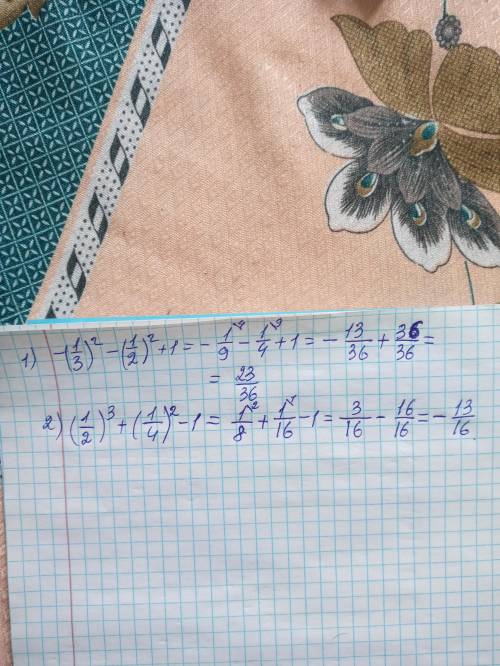 1) -(1/3)² - (1/2)² + 1 = - 1⁴/9 - 1⁹/4 + 1 = - 13/36 + 36/36 =
= 23/36
2) (1/2)³ + (1/4)² - 1 = 1²/8 + 1¹/16 - 1 = 3/16 - 16/16 = - 13/16